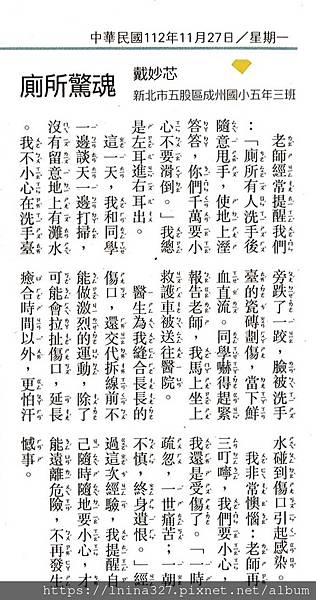 中華民國112年11月27日／星期一
廁所驚魂
戴妙芯
新北市五股區成州國小五年三班
老師經常提醒我們
：「廁所有人洗手後
隨意甩手，使地上溼
答答，你們千萬要小
心不要滑倒。」我總
是左耳進右耳出。
這一天，我和同學
一邊談天一邊打掃，
沒有留意地上有灘水
。我不小心在洗手臺
旁跌了一跤，臉被洗手
臺的瓷磚劃傷，當下鮮
血直流。同學嚇得趕緊
報告老師，我馬上坐上
救護車被送往醫院。
醫生為我縫合長長的
傷口，還交代拆線前不
能做激烈的運動，除了
可能會拉扯傷口，延長
癒合時間以外，更怕汗
水碰到傷口引起感染。
我非常懊惱：老師再
三叮嚀，我們要小心，
我還是受傷了。「一時
疏忽，一世痛苦；一朝
不慎，終身遺恨。」經
過這次經驗，我提醒自
己隨時隨地要小心，才
能遠離危險，不再發生
憾事。
https://lnina327.pixnet.net/album